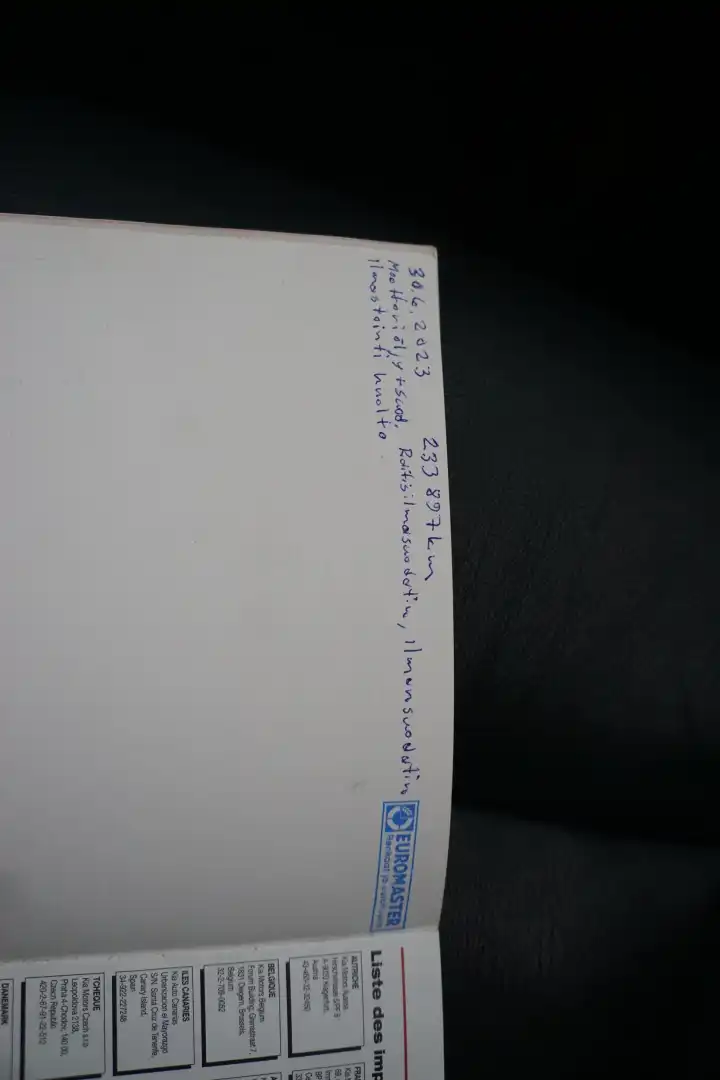 30.6.2023 233 897 km
Moottoriöljy + suod. Raitisilmasuodatin, Ilmansuodatin
Ilmastointi huolto
EUROMASTER
Renkaat ja
Liste des imp
AUTRICHE
Kia Motors Austria
Austria
BELGIQUE
Kia Motors Belgium
1831 Diegem, Brussels,
Belgium
32-2-709-0052
ILES CANARIES
Kia Auto Canarias
Urbanizacion el Mayorago
S/N. Santa Cruz de Tenerife,
Canary Island,
Spain
34-922-227248
TCHEQUE
Kia Motors Czech s.r.o
Leopoldova 2138,
Praha 4-Chodov, 140 00,
Czech Republic
DANEMARK
FRA